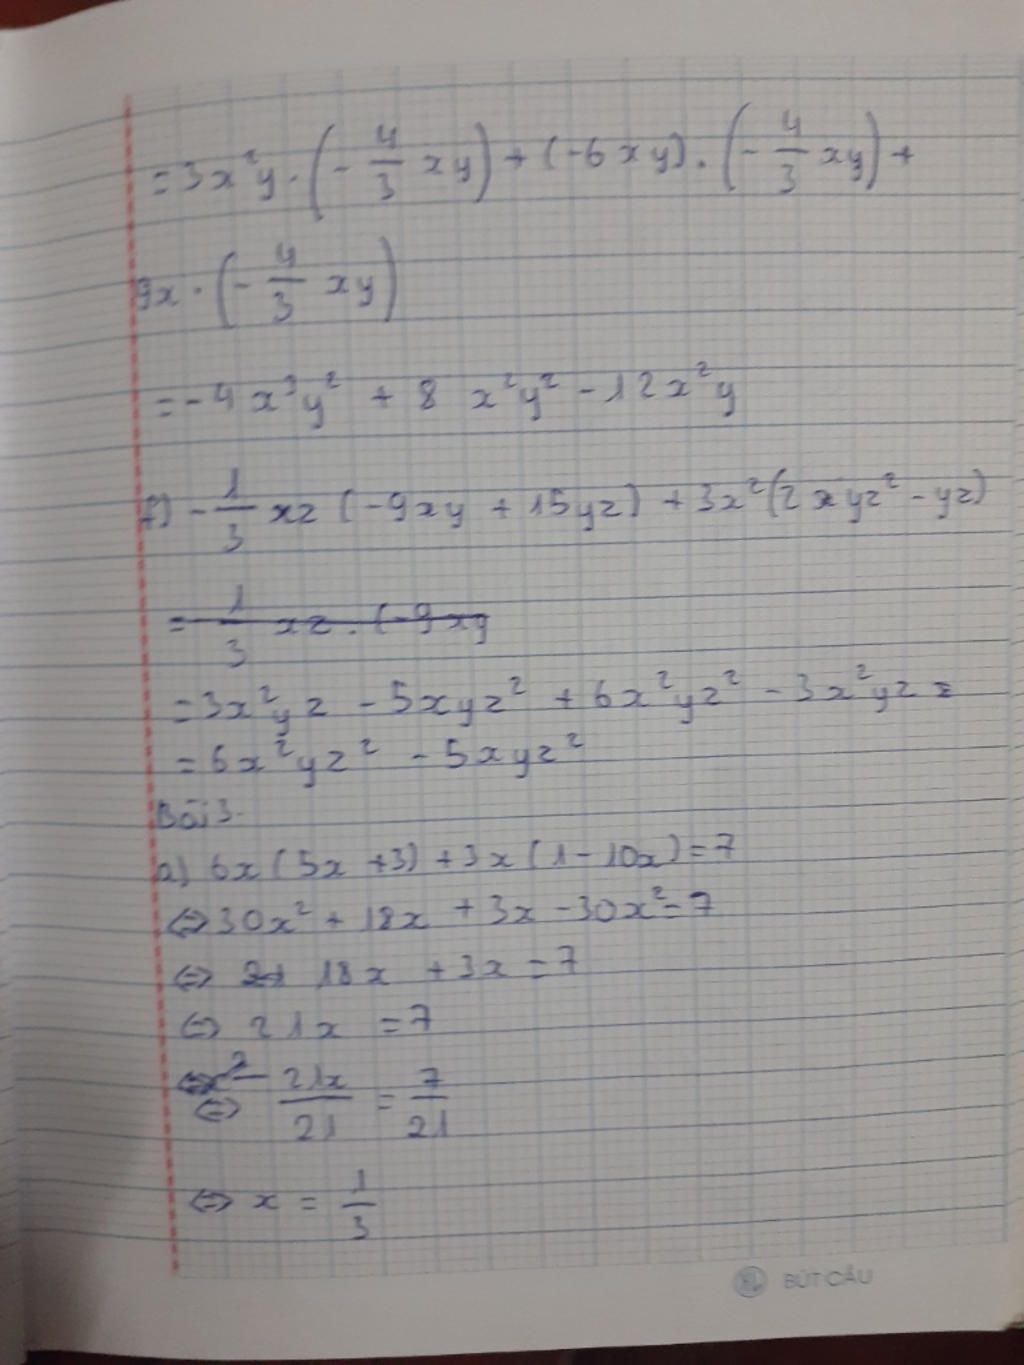 = 3x²y · (- 4/3 xy) + (-6xy) . (- 4/3 xy) +
9x · (- 4/3 xy)
= - 4x³y² + 8 x²y² - 12x²y
f) - 1/3 xz (-9xy + 15yz) + 3x²(2xyz² - yz)
= - 1/3 xz . (-9xy
= 3x²yz - 5xyz² + 6x²yz² - 3x²yz =
= 6x²yz² - 5xyz²
Bài 3.
a) 6x(5x +3) + 3x(1 - 10x) = 7
⇔ 30x² + 18x + 3x - 30x² = 7
⇔ 21 18x + 3x = 7
⇔ 21x = 7
⇔ x²
⇔ 21x/21 = 7/21
⇔ x = 1/3
BÚT CẦU